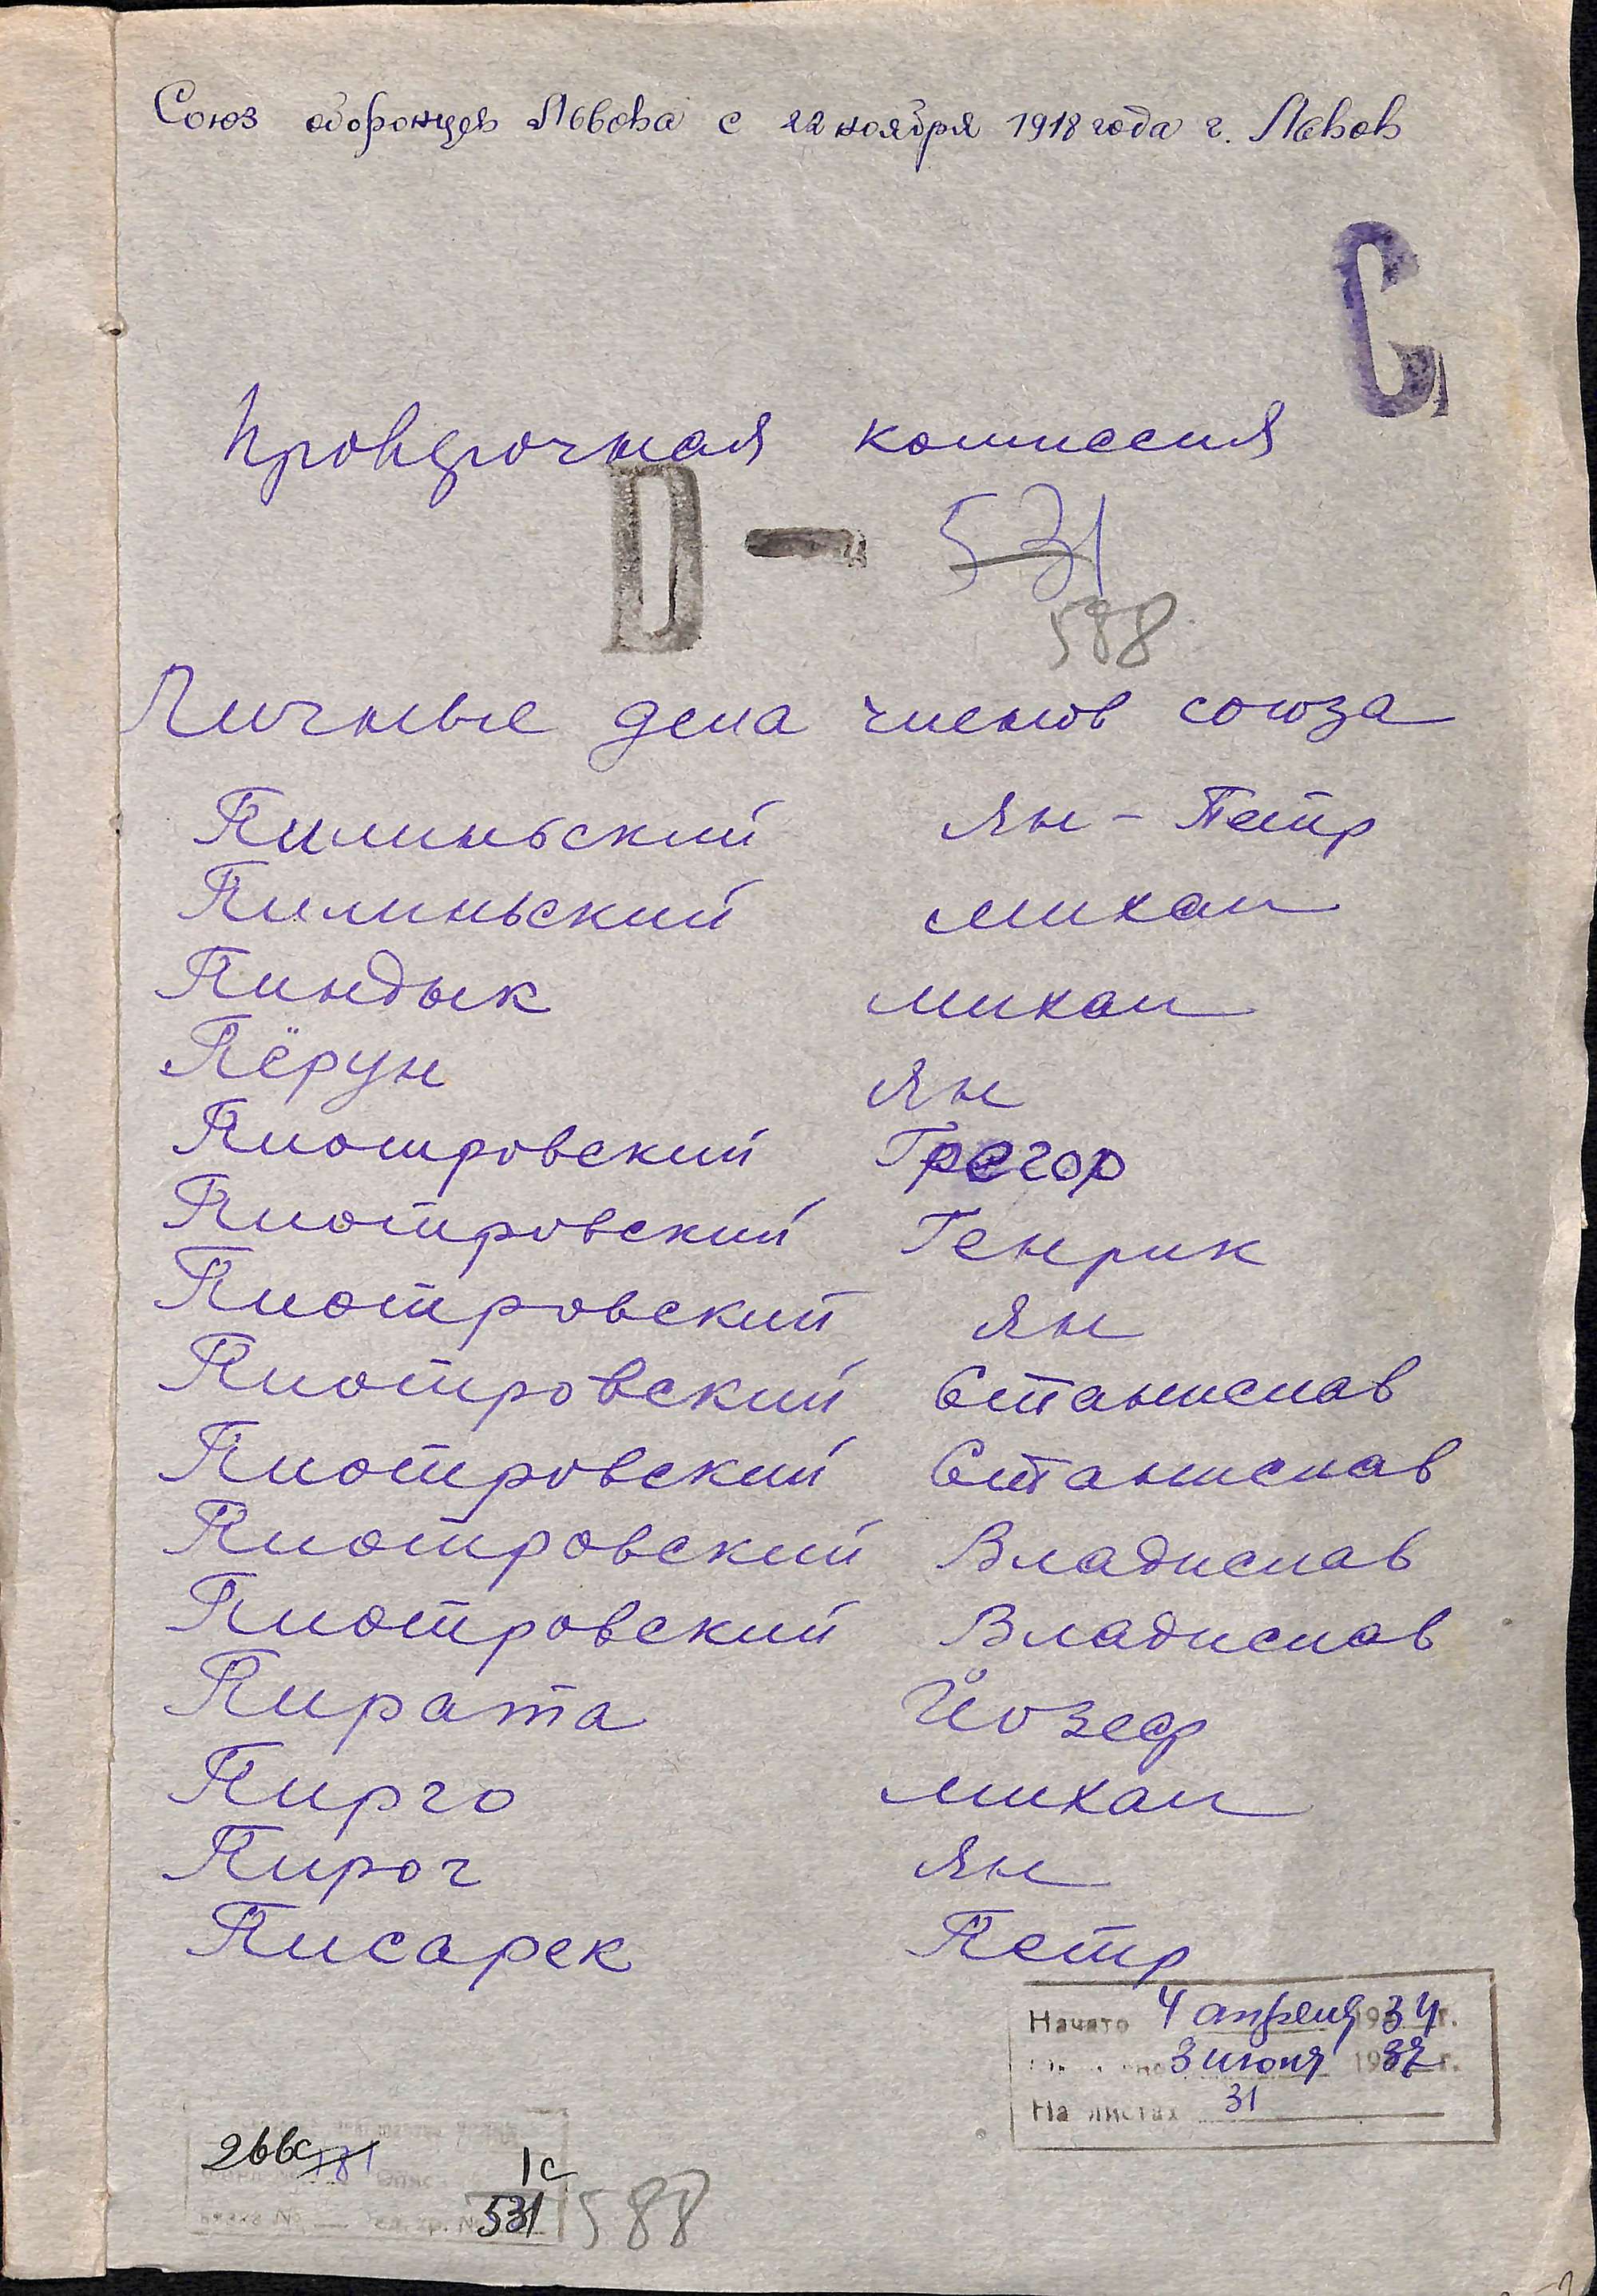 Союз оборонцев Львова с 22 ноября 1918 года г. Львов
С
Проверочная комиссия
D — 531
588
Личные дела членов союза
Пилиньский Ян - Петр
Пилиньский Михал
Пиндык Михал
Пёрун Ян
Пиотровский Грегор
Пиотровский Генрик
Пиотровский Ян
Пиотровский Станислав
Пиотровский Станислав
Пиотровский Владислав
Пиотровский Владислав
Пирата Йозеф
Пирго Михал
Пирог Ян
Писарек Петр
Начато 4 апреля 1934 г.
3 июня 19 г.
На листах 31
266с 181 1с
531 588